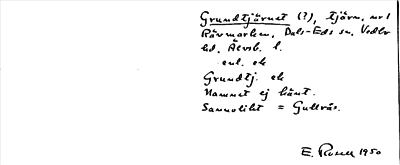 Grundtjärnet (?), tjärn, nr 1
Rävmarken, Dals-Eds sn, Vedbo
hd, Älvsb. l.
enl. ek
Grundtj. ek
Namnet ej känt.
Sannolikt = Gullrås.
E. Rosell 1950